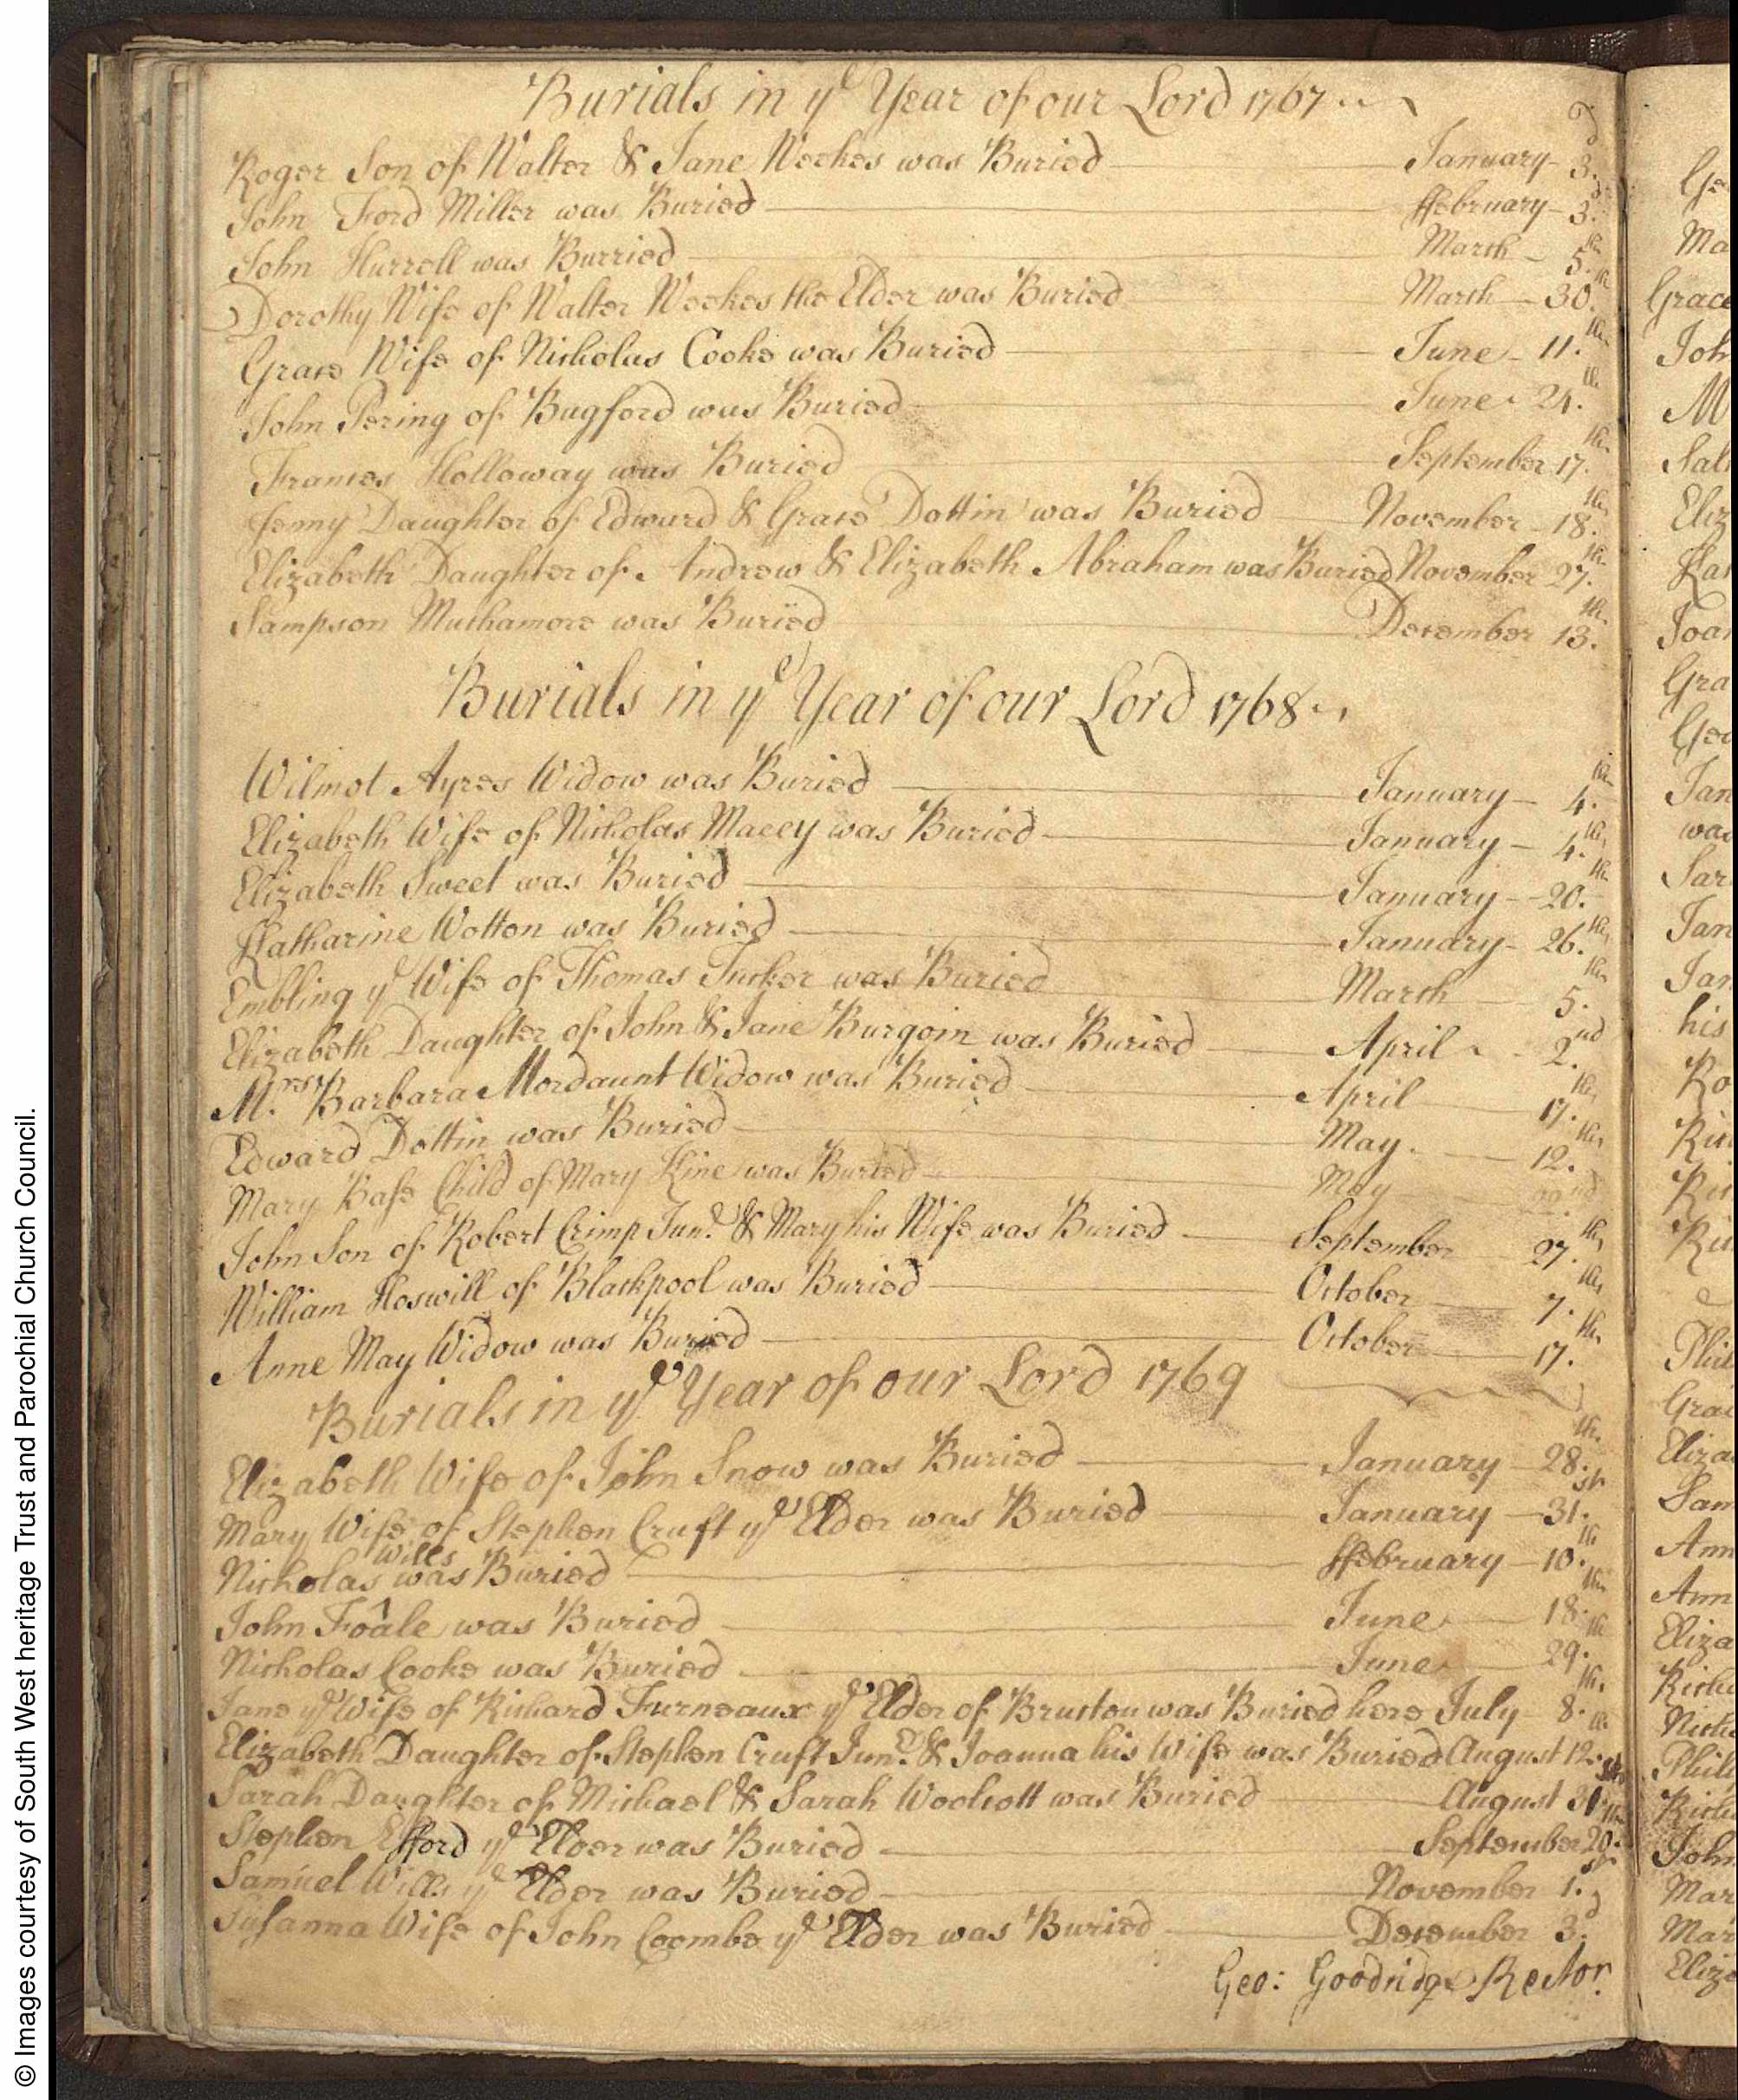 Burials in yᵉ Year of our Lord 1767
Roger Son of Walter & Jane Weekes was Buried January 3.ᵈ
John Ford Miller was Buried ffebruary 3.ᵈ
John Hurrell was Burried March 5.ᵗʰ
Dorothy Wife of Walter Weekes the Elder was Buried March 30.ᵗʰ
Grace Wife of Nicholas Cooke was Buried June 11.ᵗʰ
John Pering of Bugford was Buried June 24.ᵗʰ
Frances Holloway was Buried September 17.ᵗʰ
Jenny Daughter of Edward & Grace Dottin was Buried November 18.ᵗʰ
Elizabeth Daughter of Andrew & Elizabeth Abraham was Buried November 27.ᵗʰ
Sampson Muchamore was Buried December 13.ᵗʰ
Burials in yᵉ Year of our Lord 1768
Wilmot Ayres Widow was Buried January 4.ᵗʰ
Elizabeth Wife of Nicholas Macey was Buried January 4.ᵗʰ
Elizabeth Sweet was Buried January 20.ᵗʰ
Katharine Wotton was Buried January 26.ᵗʰ
Embling yᵉ Wife of Thomas Tucker was Buried March 5.ᵗʰ
Elizabeth Daughter of John & Jane Burgoin was Buried April 2.ⁿᵈ
M.ʳˢ Barbara Mordaunt Widow was Buried April 17.ᵗʰ
Edward Dottin was Buried May 12.ᵗʰ
Mary Base Child of Mary Kine was Buried May 22ⁿᵈ
John Son of Robert Crimp Jun.ʳ & Mary his Wife was Buried September 27.ᵗʰ
William Hoswill of Blackpool was Buried October 7.ᵗʰ
Anne May Widow was Buried October 17.ᵗʰ
Burials in yᵉ Year of our Lord 1769
Elizabeth Wife of John Snow was Buried January 28.ᵗʰ
Mary Wife of Stephen Cruft yᵉ Elder was Buried January 31.ˢᵗ
Nicholas Wills was Buried ffebruary 10.ᵗʰ
John Foale was Buried June 18.ᵗʰ
Nicholas Cooke was Buried June 29.ᵗʰ
Jane yᵉ Wife of Richard Furneaux yᵉ Elder of Bruston was Buried here July 8.ᵗʰ
Elizabeth Daughter of Stephen Cruft Jun.ʳ & Joanna his Wife was Buried August 12.ᵗʰ
Sarah Daughter of Michael & Sarah Woolcott was Buried August 31.ˢᵗ
Stephen Efford yᵉ Elder was Buried September 20.ᵗʰ
Samuel Wills yᵉ Elder was Buried November 1.ˢᵗ
Susanna Wife of John Coombe yᵉ Elder was Buried December 3.ᵈ
Geo: Goodridge Rector.
© Images courtesy of South West heritage Trust and Parochial Church Council.